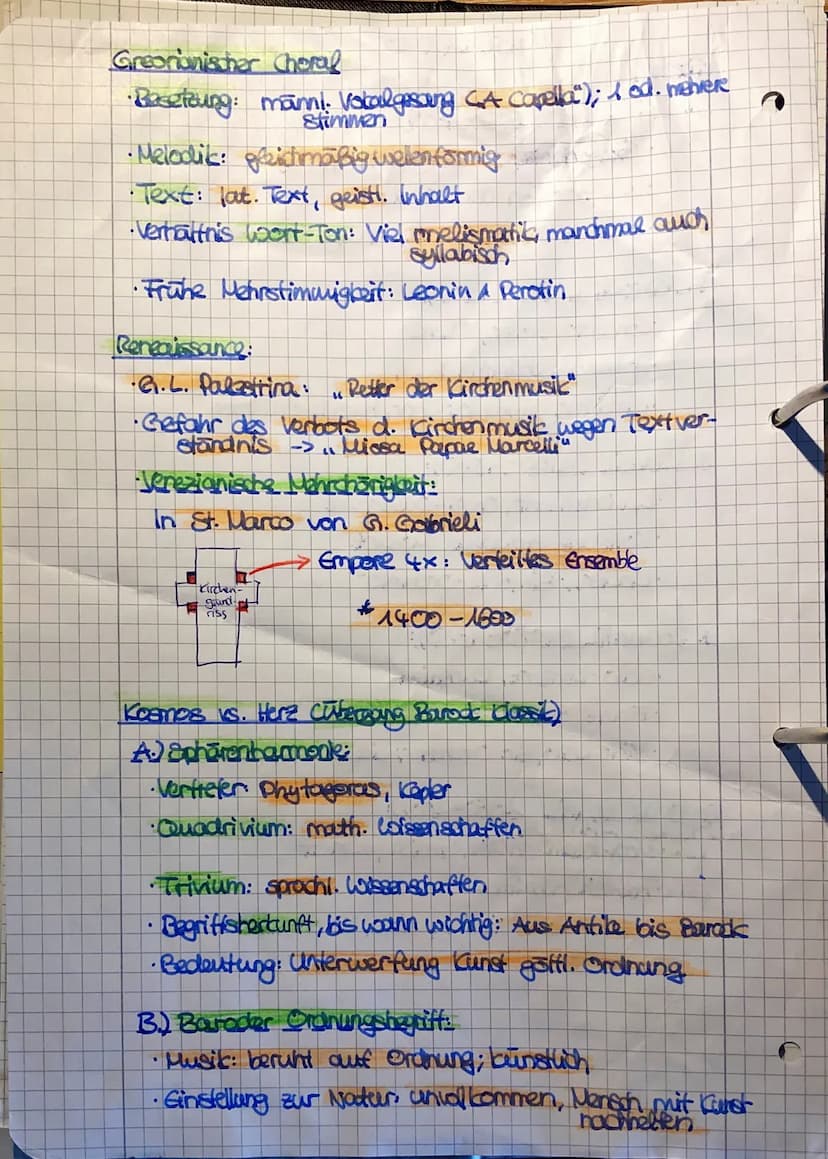 Greorianischer Choral
· Besetzung: männl. Vokalgesang („A Capella"); 1 od. mehrere
stimmen
· Melodik: gleichmäßig wellenförmig
· Text: lat. Text, geistl. Inhalt
· Verhältnis Wort-Ton: Viel melismatik, manchmal auch
syllabisch
· Frühe Mehrstimmigkeit: Leonin & Perotin
Reneaissance:
· G.L. Palestrina: „Retter der Kirchenmusik"
· Gefahr des Verbots d. Kirchenmusik wegen Textver-
ständnis -> „Missa Papae Marcelli"
· Venezianische Mehrchörigkeit:
In St. Marco von G. Gabrieli
Empore 4x: Verteiltes Ensemble
Kirchen-
grund-
riss
* 1400-1600
Kosmos vs. Herz (Übergang Barock Klassik)
A.) Sphärenharmonik:
· Vertreter: Phytagoras, Kepler
· Quadrivium: math. Wissenschaften
· Trivium: sprachl. Wissenschaften
· Begriffsherkunft, bis wann wichtig: Aus Antike bis Barock
· Bedeutung: Unterwerfung Kunst göttl. Ordnung
B.) Barocker Ordnungsbegriff:
· Musik: beruht auf Ordnung; künstlich
· Einstellung zur Natur: unvollkommen, Mensch mit Kunst
nachhelfen